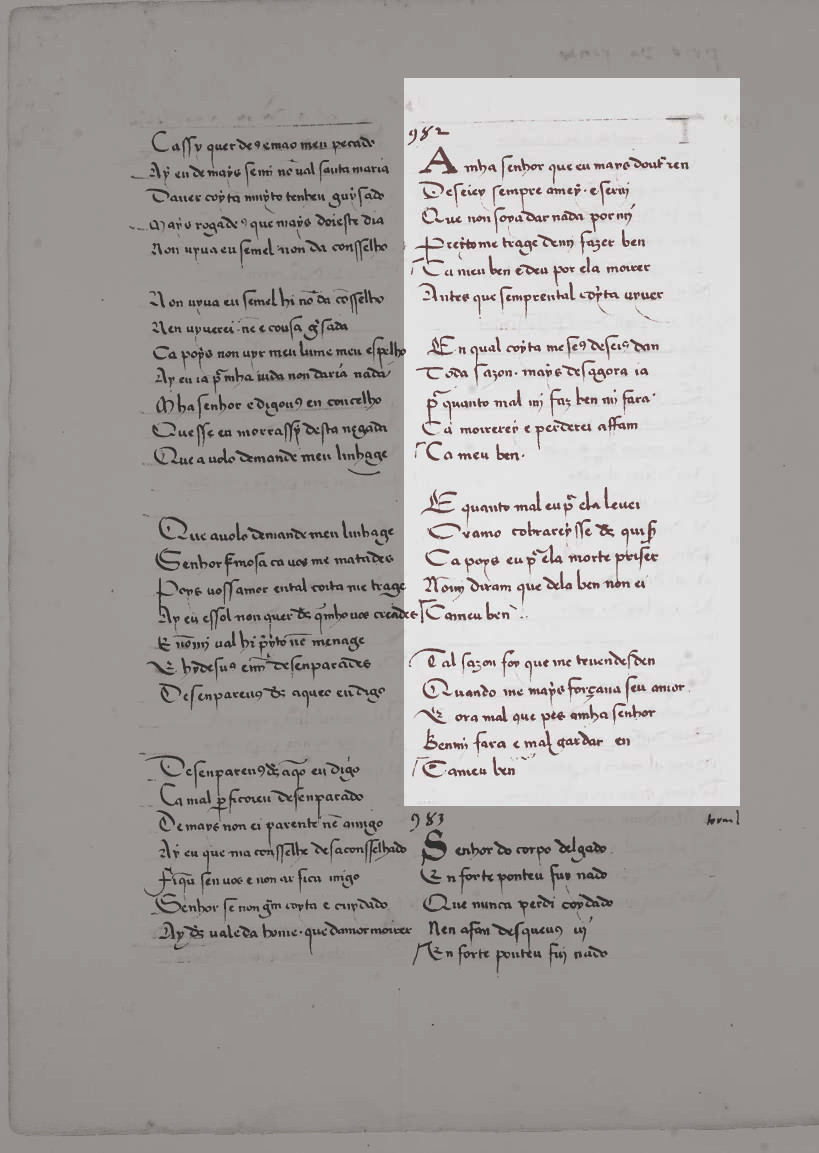 Cassy quer de9 e mao meu pecado
Ay eu de mays semi nõ ual santa maria
Dauer coyta muyto tenheu guysado
Mays rogade9 que mays doieste dia
Non uyua eu semel non da consselho
Non uyua eu semel hi nõ da cõsselho
Nen uyuerei nē e cousa gⁱsada
Ca poys non uyr meu lume meu espelho
Ay eu ia p̄ mha uida non daria nada
Mha senhor e digou9 en concelho
Que sse eu morrassy desta negada
Que a uolo demande meu linhage
Que auolo demande meu linhage
Senhor fremosa ca uos me matades
Poys uossamor ental coita me trage
Ay eu e ssol non quer d̄s q̄ mho uos creades
E nō mi ual hi p̃yto nē menage
E hydesu9 e im̃ desenparades
Desenpareu9 d̄s aqueo eu digo
Desenpareu9 d̄s a q̄o eu digo
Ca mal p̱ ficoreu desenparado
De mays non ei parente nē amigo
Ay eu que ma consselhe desaconsselhado
Fiq̄u sen uos e non ar fica migo
Senhor se non gm̃ coyta e cuydado
Ay d̄s uale da home que damor moirer
982
A mha senhor que eu mays doutr̃ ren
Deseiey sempre amey e serui
Que non soya dar nada por mỹ
Preito me trage demi fazer ben
Ca meu ben e deu por ela moirer
Antes que semprental coyta uyuer
En qual coyta me se9 deseis dan
Toda sazon mays desagora ia
p̃ quanto mal mi faz ben mi fara
Ca moirerey e perderei affam
Ca meu ben
E quanto mal eu p̃ ela leuei
Oramo cobrarey sse d̄s quis̃
Ca poys eu p̃ ela morte priser
Nomi diram que dela ben non ei
Ca meu ben
Tal sazon foy que me teuen desden
Quando me mays forçaua seu amor
E ora mal que pes amha senhor
Benmi fara e mal gardar en
Ca meu ben
983
Senhor do corpo delgado
En forte ponteu fuy nado
Que nunca perdi coydado
Nen afan desqueu9 ui
En forte ponteu fuy nado